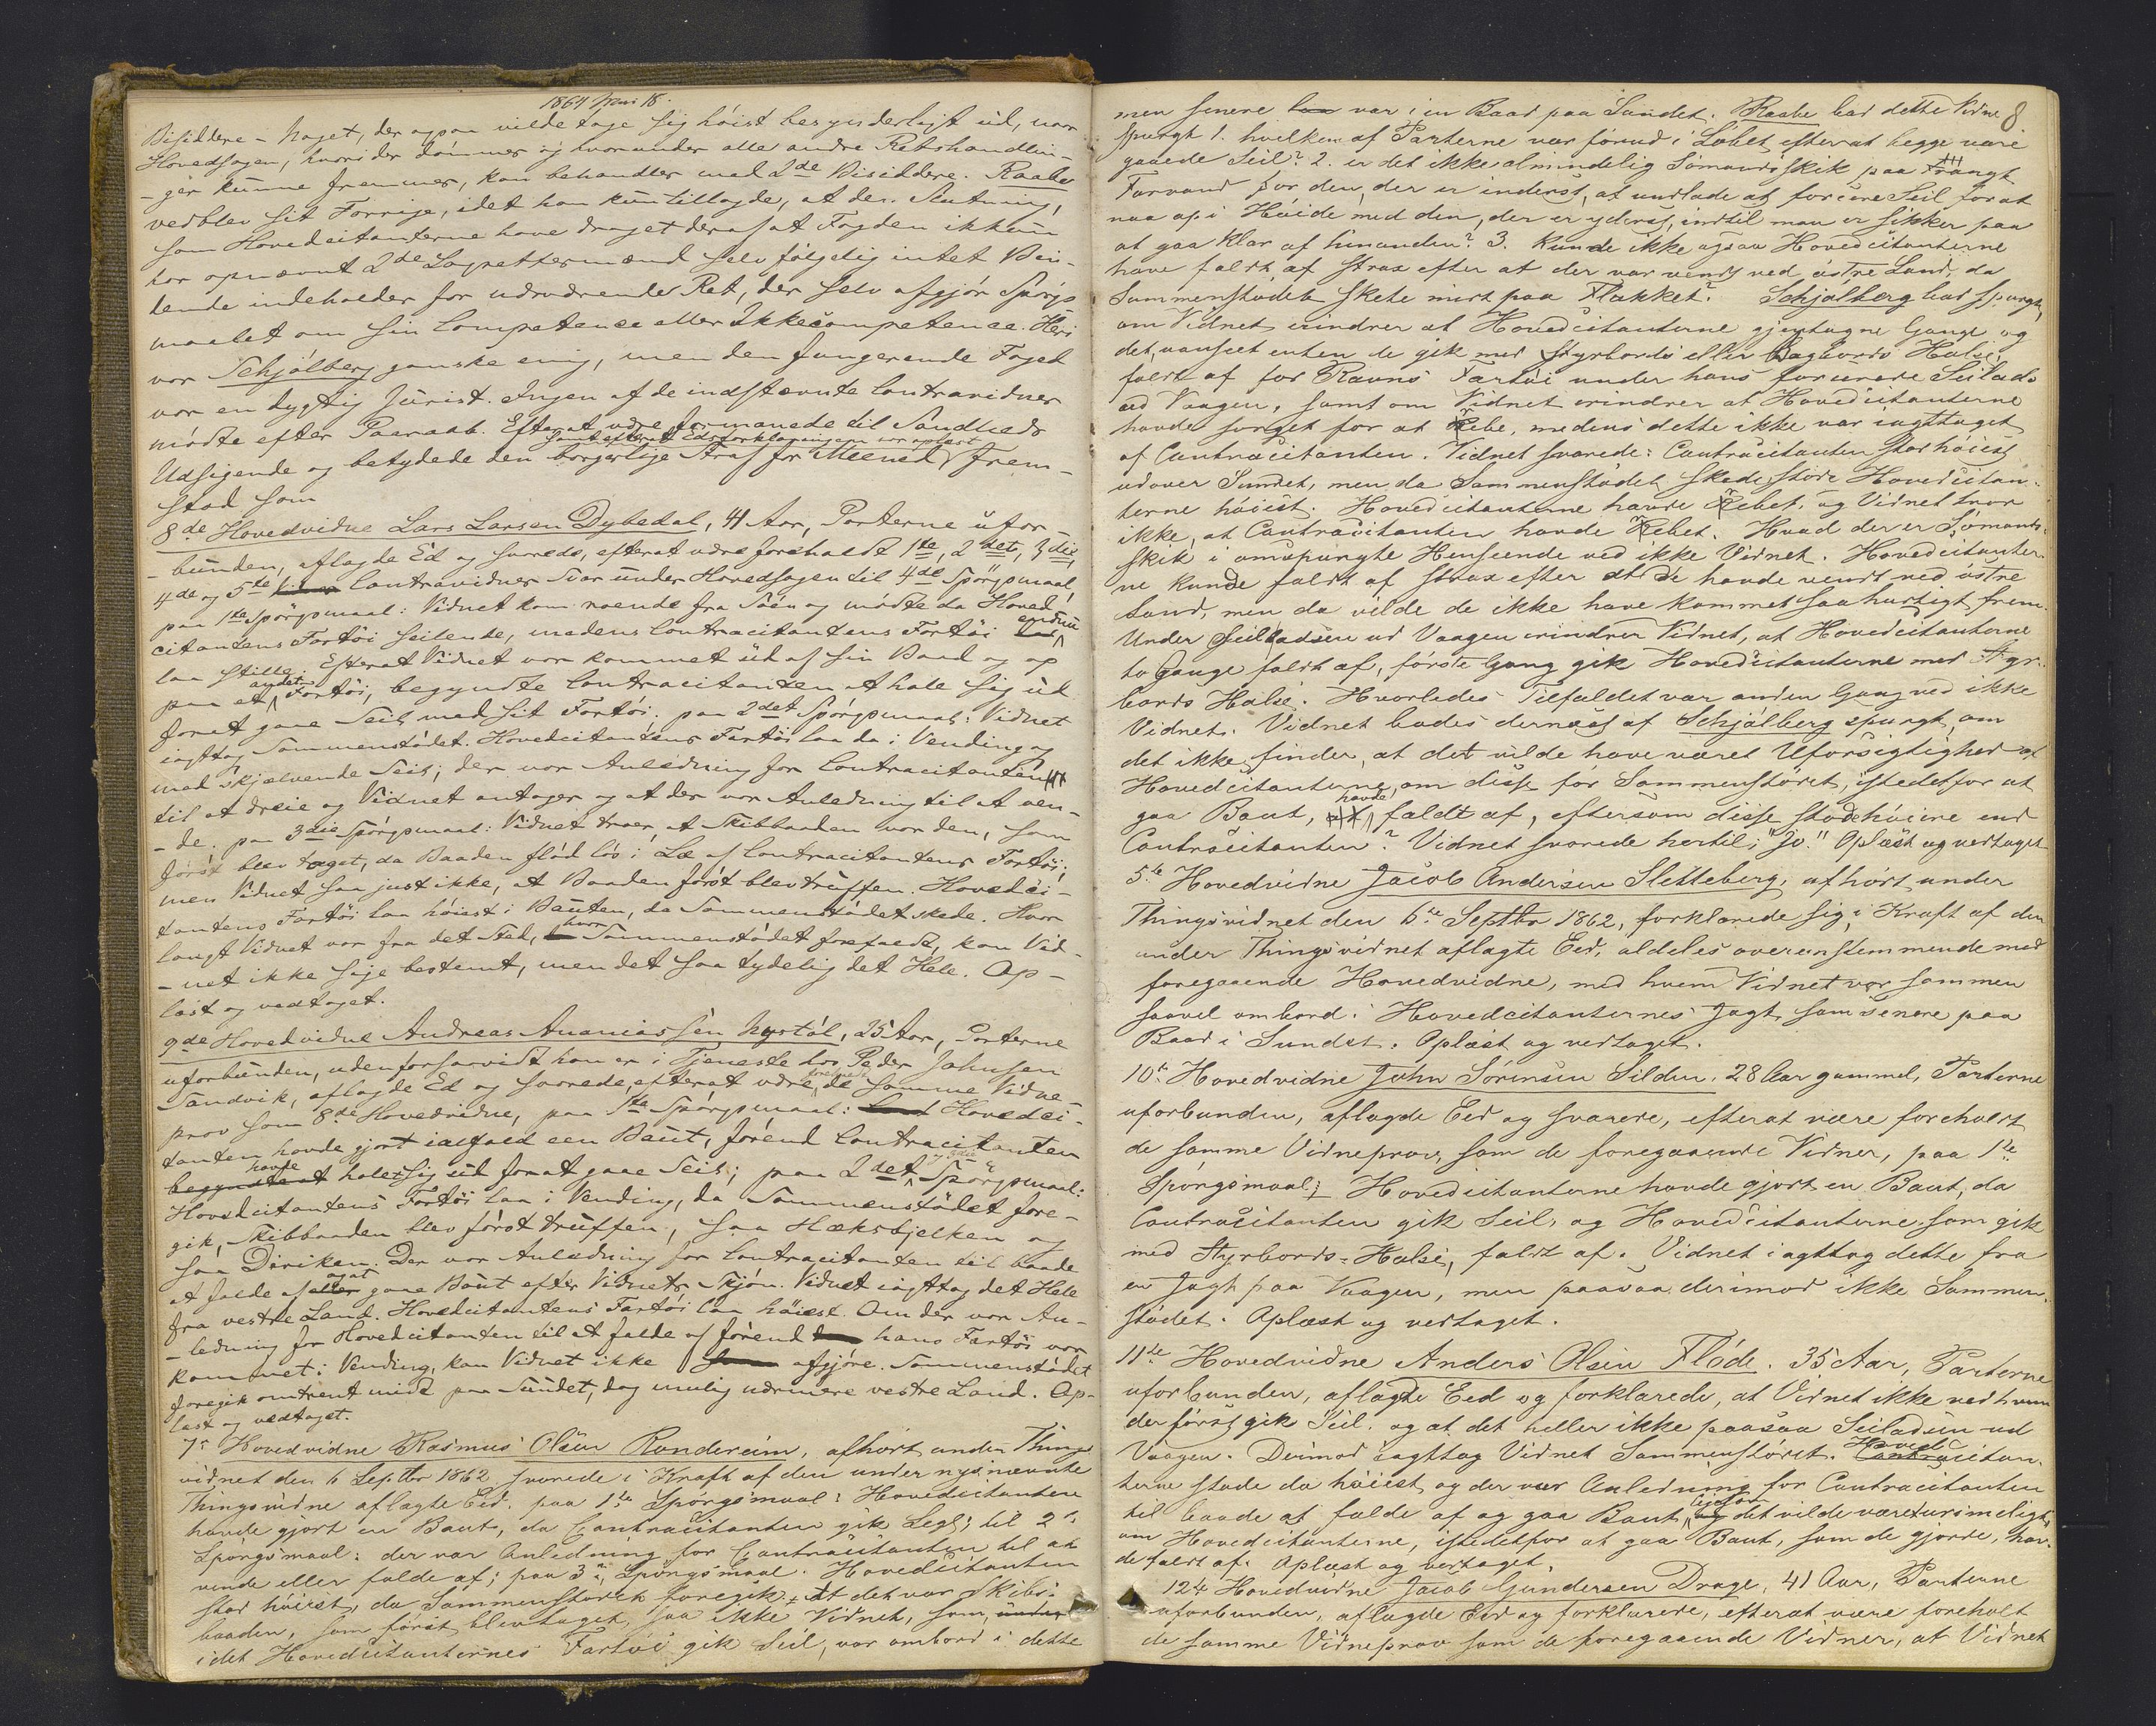 1864 Juni 18.
Bisiddere – Noget, der ogsaa vilde tage sig høist besynderligt ud, naar
Hovedsagen, hvori der dømmes og hvorunder alle andre Retshandlin-
-ger kunne fremmes, kan behandles med 2de Bisiddere. Raabe
vedblev sit Forrige, idet han kun tillagde, at den Slutning,
som Hovedcitanterne have draget deraf at Fogden ikkun
har opnævnt 2de Lagrettesmænd selvfølgelig intet Bin-
dende indeholder for nærværende Ret, der selv afgjør Spørgs
maalet om sin Competence eller Ikkecompetence. Heri
var Schjølberg ganske enig, men den fungerende Foged
var en dygtig Jurist. Ingen af de indstævnte Contravidner
mødte efter Paaraab. Efterat være formanede til Sandheds
samt efterat Edsforklaringen var oplæst
Udsigende og betydede den borgerlige Straf for Meened frem-
stod som
8de Hovedvidne Lars Larsen Dybedal, 41 Aar, Parterne ufor-
-bunden, aflagde Ed og svarede, efterat være foreholdt 1ste, 2det, 3die,
4de og 5te Contravidnes Svar under Hovedsagen til 4de Spørgsmaal,
paa 1ste Spørgsmaal: Vidnet kom roende fra Søen og mødte da Hoved
citantens Fartøi seilende, medens Contracitantens Fartøi endnu
laa stille. Efterat Vidnet var kommet ud af sin Baad og op
paa et andet Fartøi, begyndte Contracitanten at hale sig ud
forat gaae Seil med sit Fartøi. paa 2det Spørgsmaal: Vidnet
iagttog Sammenstødet. Hovedcitantens Fartøi laa da i Vending og
med skjælvende Seil; der var Anledning for Contracitanten
til at dreie og Vidnet antager og at der var Anledning til at ven-
-de. paa 3die Spørgsmaal: Vidnet troer, at Skibbaaden var den, som
først blev taget, da Baaden flød løs i Læ af Contracitantens Fartøi;
men Vidnet saa just ikke, at Baaden først blev truffen. Hovedci-
tantens Fartøi laa høiest i Bauten, da Sammenstødet skede. Hvor
langt Vidnet var fra det Sted, hvor Sammenstødet forefaldt, kan Vid-
-net ikke sige bestemt, men det saa tydelig det Hele. Op-
læst og vedtaget.
9de Hovedvidne Andreas Ananiassen Nystøl, 25 Aar, Parterne
uforbunden, uden forsaavidt han er i Tjeneste hos Peder Johnsen
Sandvik, aflagde Ed og svarede, efterat være foreholdt de samme Vidne-
prov som 8de Hovedvidne, paa 1ste Spørgsmaal: Hovedci-
tanten havde gjort ialfald een Baut, førend Contracitanten
begyndte at havde halet sig ud forat gaae Seil; paa 2det og 3die Spørgsmaal:
Hovedcitantens Fartøi laa i Vending, da Sammenstødet fore-
gik, Skibbaaden blev først truffen, saa Hæksbjelken og
saa Diriken. Der var Anledning for Contracitanten til baade
at falde af og at gaae Baut efter Vidnets Skjøn. Vidnet iagttog det Hele
fra vestre Land. Hovedcitantens Fartøi laa høiest. Om der var An-
-ledning for Hovedcitanten til at falde af førend hans Fartøi var
kommet i Vending, kan Vidnet ikke afgjøre. Sammenstødet
foregik omtrent midt paa Sundet, dog mulig nærmere vestre Land. Op-
læst og vedtaget.
7e Hovedvidne Rasmus Olsen Rundereim, afhørt under Things
vidnet den 6 Septbr 1862 svarede i Kraft af den under nysnævnte
Thingsvidne aflagte Eed. paa 1ste Spørgsmaal: Hovedcitanten
havde gjort en Baut, da Contracitanten gik Segl; til 2det
Spørgsmaal: der var Anledning for Contracitanten til at
vende eller falde af; paa 3die Spørgsmaal. Hovedcitanten
stod høiest, da Sammenstødet foregik. At det var Skibs-
baaden, som først blev taget, saa ikke Vidnet, som, under
idet Hovedcitanternes Fartøi gik Seil, var ombord i dette
8
men senere var i en Baad paa Sundet. Raabe bad dette Vidne
spurgt 1. hvilken af Parterne var forud i Løbet efterat begge vare
gaaede Seil? 2. er det ikke almindelig Sømandsskik paa trangt
Farvand for den, der er inderst, at undlade at forcere Seil for at
naa op i Høide med den, der er yderst, indtil man er sikker paa
at gaa klar af hinanden? 3. Kunde ikke ogsaa Hovedcitanterne
have faldt af strax efter at der var vendt ved østre Land, da
Sammenstødet skete midt paa Flakket? Schjølberg bad spurgt,
om Vidnet erindrer at Hovedcitanterne gjentagne Gange og
det, uanseet enten de gik med Styrbords eller Bagbords Halse,
faldt af for Ravns Fartøi under hans forcerede Seilads
ud Vaagen, samt om Vidnet erindrer at Hovedcitanterne
havde sørget for at rebe, medens dette ikke var iagttaget
af Contracitanten. Vidnet svarede: Contracitanten stod høiest
udover Sundet, men da Sammenstødet skede, stode Hovedcitan-
terne høiest. Hovedcitanterne havde rebet, og Vidnet troer
ikke, at Contracitanten havde rebet. Hvad der er Sømands-
skik i omspurgte Henseende ved ikke Vidnet. Hovedcitanter-
ne kunde faldt af strax efter at de havde vendt ved østre
Land, men da vilde de ikke have kommet saa hurtigt frem.
Under Seiladsen ud Vaagen erindrer Vidnet, at Hovedcitanterne
to Gange faldt af, første Gang gik Hovedcitanterne med Styr-
bords Halse. Hvorledes Tilfældet var anden Gang ved ikke
Vidnet. Vidnet bades dernæst af Schjølberg spurgt, om
det ikke finder, at det vilde have været Uforsigtighed af
Hovedcitanterne, om disse for Sammenstødet, istedetfor at
gaa Baut, havde faldt af, eftersom disse stod høiere end
Contracitanten? Vidnet svarede hertil; "Jo." Oplæst og vedtaget
5te Hovedvidne Jacob Andersen Sletteberg, afhørt under
Thingsvidnet den 6te Septbr 1862, forklarede sig, i Kraft af den
under Thingsvidnet aflagte Eed, aldeles overenstemmende med
foregaaende Hovedvidne, med hvem Vidnet var sammen
saavel ombord i Hovedcitanternes Jagt, som senere paa
Baad i Sundet. Oplæst og vedtaget.
10de Hovedvidne John Sörensen Silden, 28 Aar gammel, Parterne
uforbunden, aflagde Eed og svarede, efterat være foreholdt
de samme Vidneprov, som de foregaaende Vidner, paa 1ste
Spørgsmaal; Hovedcitanterne havde gjort en Baut, da
Contracitanten gik Seil, og Hovedcitanterne, som gik
med Styrbords-Halse, faldt af. Vidnet iagttog dette fra
en Jagt paa Vaagen, men paasaa derimod ikke Sammen-
stødet. Oplæst og vedtaget.
11te Hovedvidne Anders Olsen Fløde. 35 Aar, Parterne
uforbunden, aflagde Eed og forklarede, at Vidnet ikke ved hvem
der først gik Seil, og at det heller ikke paasaa Seiladsen ud
Vaagen. Derimod iagttog Vidnet Sammenstødet. Hovedcitan-
terne stode da høiest og der var Anledning for Contracitanten
til baade at falde af og gaa Baut, det vilde være urimeligt,
om Hovedcitanterne, istedetfor at gaa Baut, som de gjorde, hav-
de faldt af. Oplæst og vedtaget.
12te Hovedvidne Jacob Gundersen Drage, 41 Aar, Parterne
uforbunden, aflagde Eed og forklarede, efterat være foreholdt
de samme Vidneprov som de foregaaende Vidner, at Vidnet